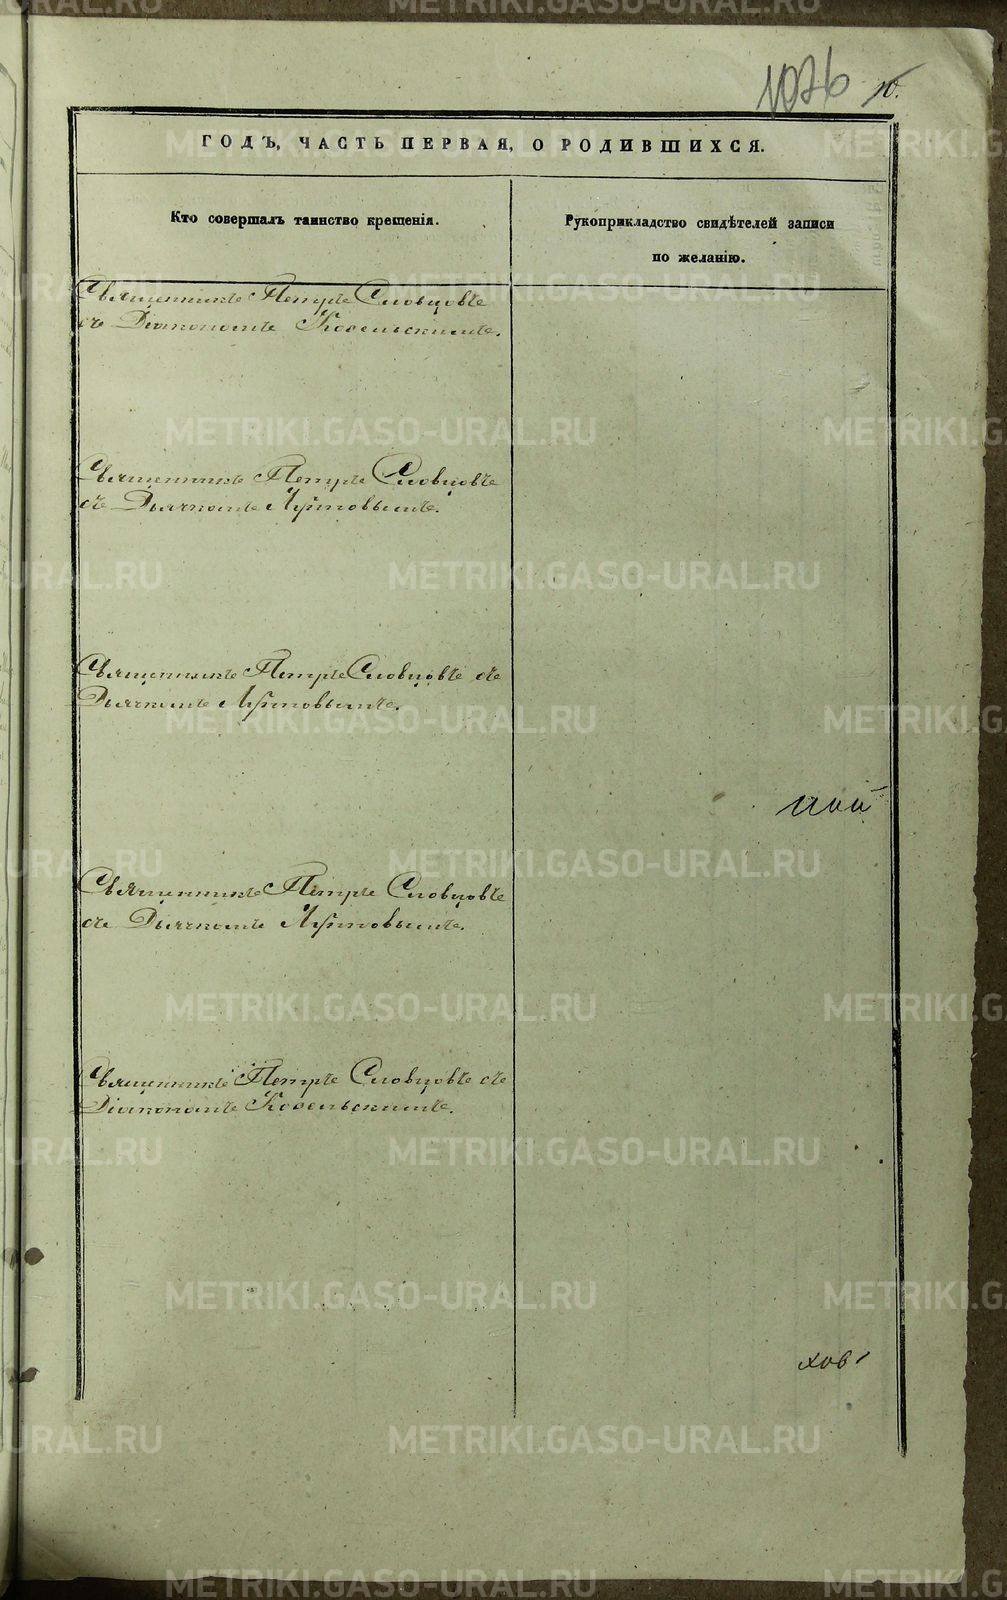 1026 10.
ГОДЪ, ЧАСТЬ ПЕРВАЯ, О РОДИВШИХСЯ.
Кто совершалъ таинство крещенія.
Рукоприкладство свидѣтелей записи
по желанію.
Священникъ Петръ Словцовъ
съ Діакономъ Козельскимъ.
Священникъ Петръ Словцовъ
съ Дьячкомъ
Священникъ Петръ Словцовъ съ
Дьячкомъ
Священникъ Петръ Словцовъ
съ Дьячкомъ
Священникъ Петръ Словцовъ съ
Діакономъ Козельскимъ.
METRIKI.GASO-URAL.RU